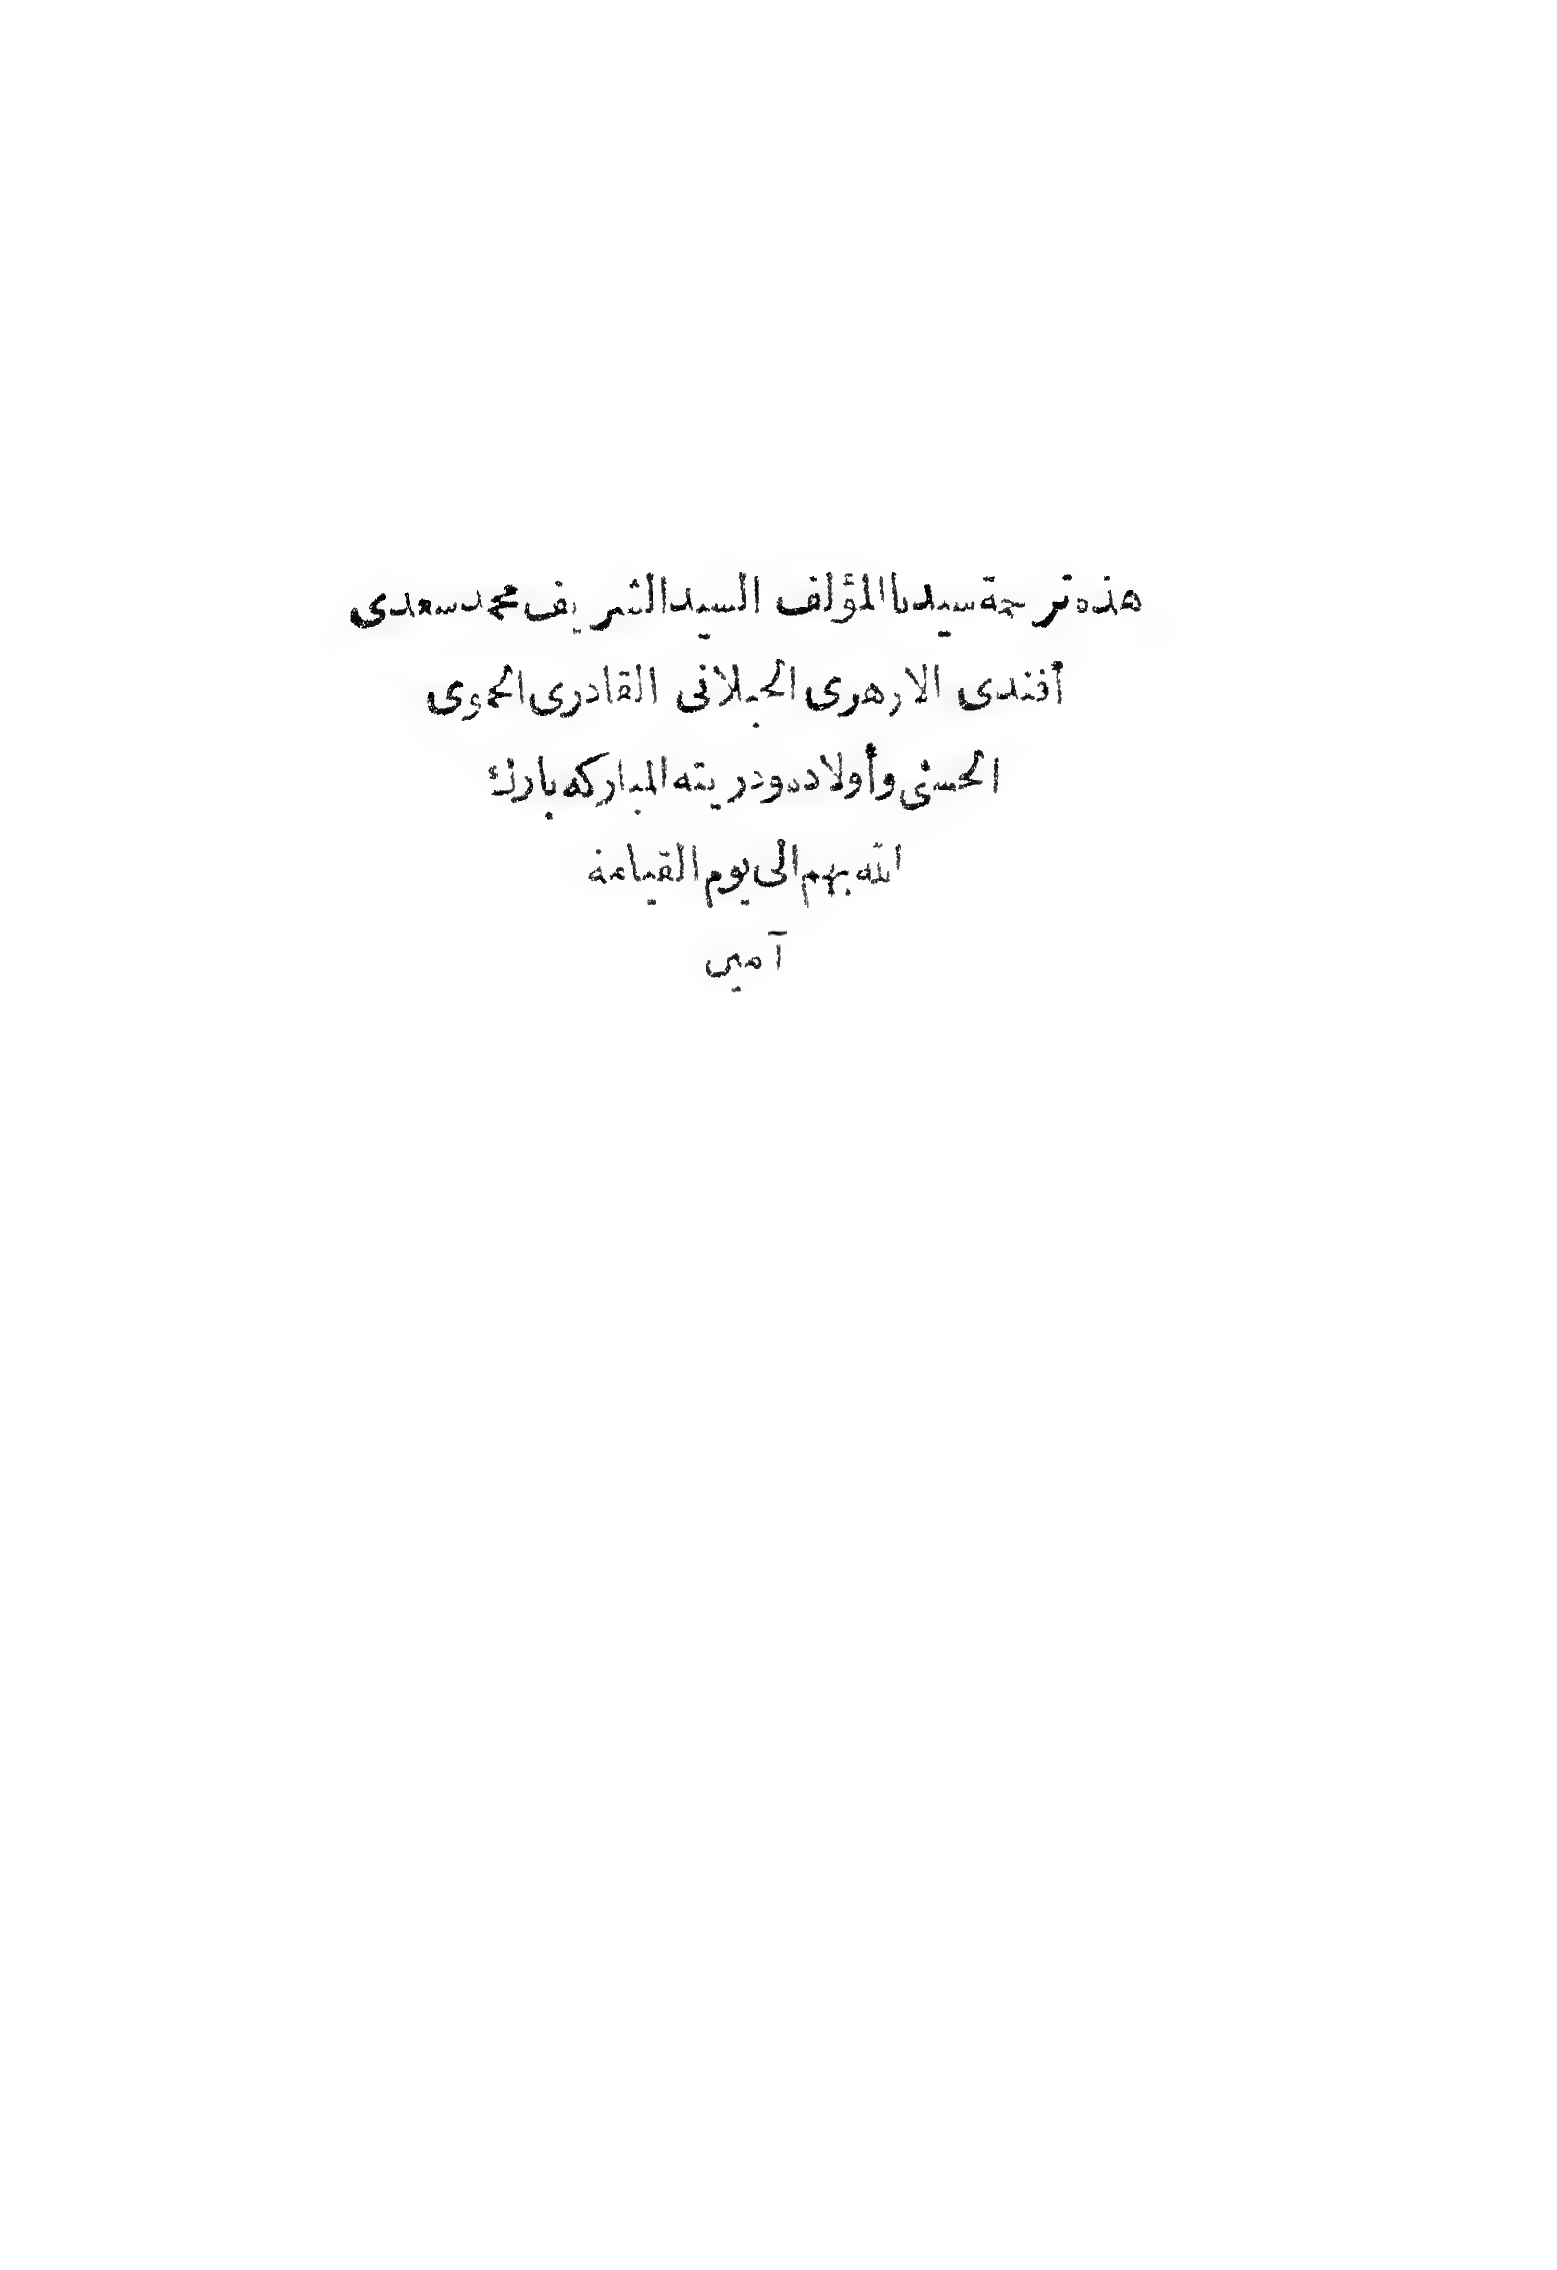 هذه ترجمة سيدنا المؤلف السيد الشريف محمد سعدى
أفندى الازهرى الجيلانى القادرى الحموى
الحسنى وأولاده وذريته المباركه بارك
الله بهم الى يوم القيامة
آمين